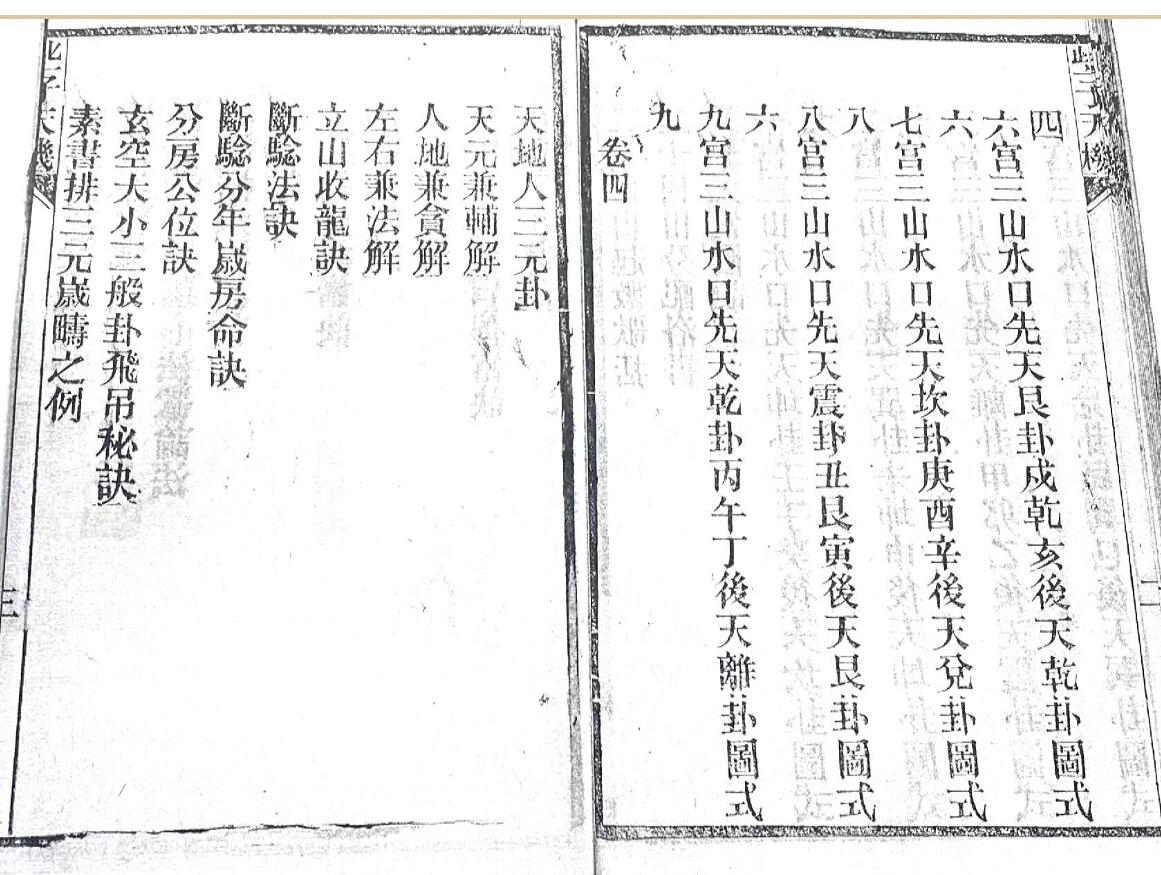 四
六宮三山水口先天艮卦戍乾亥後天乾卦圖式
六
七宮三山水口先天坎卦庚酉辛後天兌卦圖式
八
八宮三山水口先天震卦丑艮寅後天艮卦圖式
六
九宮三山水口先天乾卦丙午丁後天離卦圖式
九
卷四
天地人三元卦
天元兼輔解
人地兼貪解
左右兼法解
立山收龍訣
斷驗法訣
斷驗分年嵗房命訣
分房公位訣
玄空大小三般卦飛吊秘訣
素書排三元嵗疇之例
三